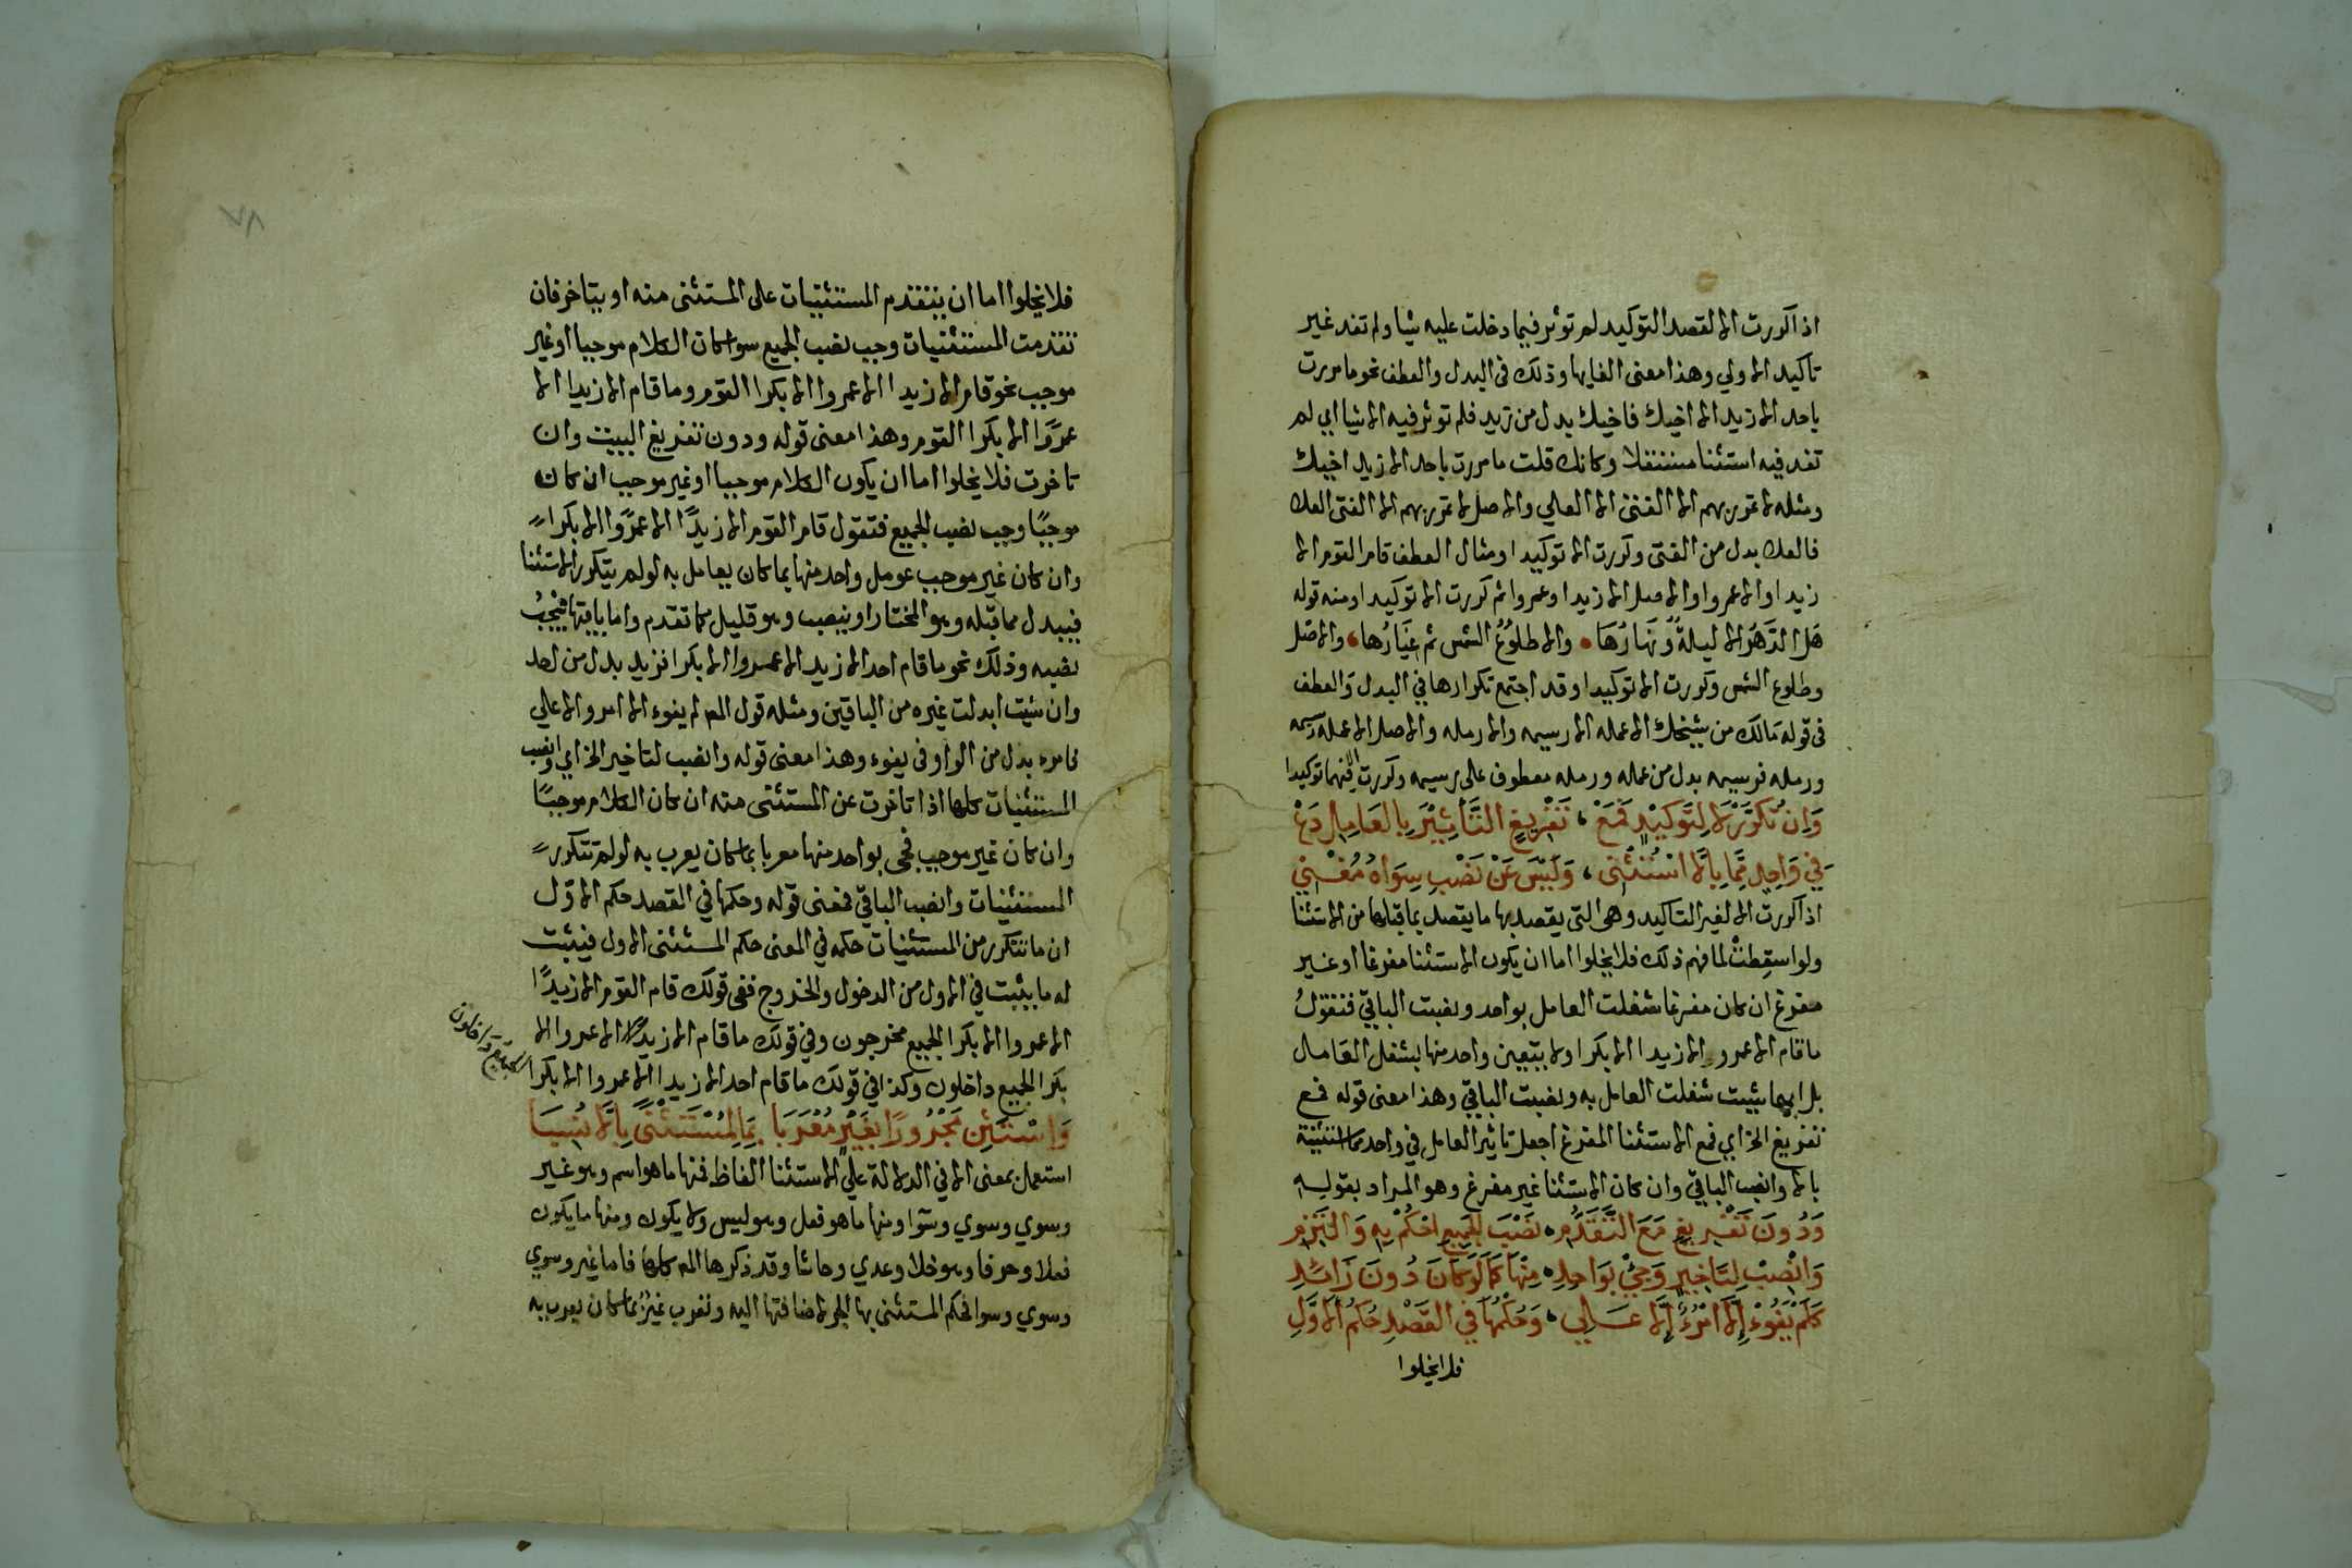 اذا كررت الا لقصد التوكيد لم توثر فيما دخلت عليه شيا ولم تفد غير
تاكيد الاولي وهذا معنى الغايها وذلك فى البدل والعطف نحو ما مررت
باحد الا زيد الا اخيك فاخيك بدل من زيد فلم توثر فيه الا شيا اي لم
تفد فيه استثنا مستقلا وكانك قلت ما مررت باحد الا زيد اخيك
ومثله لا تمرر بهم الا الفتى الا العلا والاصل لا تمرر بهم الا الفتى العلا
فالعلا بدل من الفتى وكررت الا توكيدا ومثال العطف قام القوم الا
زيدا والا عمروا والاصل الا زيدا وعمروا ثم كررت الا توكيدا ومنه قوله
هَل الدَهرُ الا ليلةٌ ونَهارُهَا • والا طلوُعُ الشمس ثم غيَارُها، والاصل
وطلوع الشمس وكررت الا توكيدا وقد اجتمع تكرارها في البدل والعطف
فى قوله مَالَك من شيخك الا عمله الا رسيمه والا رمله والاصل الا عمله رسيمه
ورمله فرسيمه بدل من عمله ورمله معطوف على رسيمه وكررت الا فيهما توكيدا
وَاِن تُكَرَّرْ لا لِتَوكِيْدٍ فَمَعْ ، تَفْرِيغٍ التَّأثِيْرَ بِالعَامِلِ دَعْ
فِي وَاحِدٍ مِمَّا بِالَّا اسْتُثْنِي ، وَلَيْسَ عَنْ نَصْبِ سِوَاهُ مُغْنِي
اذا كررت الا لغير التاكيد وهى التي يقصد بها ما يقصد بما قبلها من الاستثنا
ولو اسقِطتْ لما فهم ذلك فلا يخلوا اما ان يكون الاستثنا مفرغا او غير
مفرغ ان كان مفرغا شغلت العامل بواحد ونصبت الباقي فتقولُ
ما قام الا عمرو الا زيدا الا بكرا ولا يتعين واحد منها لشغل العامل
بل ايها شيت شغلت العامل به ونصبت الباقي وهذا معنى قوله فمع
تفريغ الخ اي فمع الاستثنا المفرغ اجعل تاثير العامل في واحد مما استثنيته
بالا وانصب الباقي وان كان الاستثنا غير مفرغ وهو المراد بقوله
وَدُونَ تَفْرِيغٍ مَعَ التَّقَدُّمِ ، نَصْبَ الجَمِيعِ احْكُمْ بِهِ وَالتَزِمِ
وَانْصِبْ لِتَاخِيرٍ وَجِيْ بوَاحِدٍ ، مِنْهَا كَمَا لَوكَانَ دُونَ زَائِدِ
كَلَمْ يَفُوْا إلَّا امْرُءٌ إلَّا عَلِي ، وَحُكْمُهَا فِي القَصْدِ حُكْمُ الاوَّلِ
فلا يخلوا
فلا يخلوا اما ان تتقدم المستثنيات على المستثنى منه او يتاخر فان
تقدمت المستثنيات وجب نصب الجميع سوا كان الكلام موجبا او غير
موجب نحو قام الا زيدا الا عمروا الا بكرا القوم وما قام الا زيدا الا
عمرًوا الا بكرا القوم وهذا معنى قوله ودون تفريغ البيت وان
تاخرت فلا يخلوا اما ان يكون الكلام موجبا او غير موجب ان كان
موجبًا وجب نصب الجميع فتقول قام القوم الا زيدًا الا عمرًوا الا بكراً
وان كان غير موجب عومل واحد منها بما كان يعامل به لو لم يتكرر الاستثنا
فيبدل مما قبله وهو المختار او ينصب وهو قليل كما تقدم واما باقيها فيَجِبُ
نصبه وذلك نحو ما قام احد الا زيد الا عمروا الا بكرا فزيد بدل من احد
وان شيت ابدلت غيره من الباقين ومثله قول المص لم يفوء الا امرو الا علي
فامره بدل من الواو فى يفوء وهذا معنى قوله وانصب لتاخير الخ اي وانصب
المستثنيات كلها اذا تاخرت عن المستثنى منه ان كان الكلام موجبًا
وان كان غير موجب فجى بواحد منها معربا بما كان يعرب به لو لم تتكرر
المستثنيات وانصب الباقي فمعنى قوله وحكمها في القصد حكم الاول
ان ما تتكرر من المستثنيات حكمه في المعنى حكم المستثنى الاول فيثبت
له ما يثبت في الاول من الدخول والخروج ففى قولك قام القوم الا زيدًا
الا عمروا الا بكرا الجميع مخرجون وفي قولك ما قام الا زيدا الا عمروا الا
بكرا الجميع داخلون وكذا في قولك ما قام احد الا زيدا الا عمروا الا بكرا
الجميع داخلون
وَاسْتَثْنِ مَجْرُورًا بغَيْرٍ مُعْرَبَا بِمَا لِمُسْتَثْنًى بِالَّا نُسِبَا
استعمل بمعنى الا في الدلالة على الاستثنا الفاظ فمنها ما هو اسم وهو غير
وسوي وسوي وسَوا ومنها ما هو فعل وهو ليس ولا يكون ومنها ما يكون
فعلا وحرفا وهو خلا وعدي وحاشا وقد ذكرها المص كلها فاما غير وسوي
وسوي وسوا فحكم المستثنى بها الجر لاضافتها اليه وتعرب غيرُ بما كان يعرب به